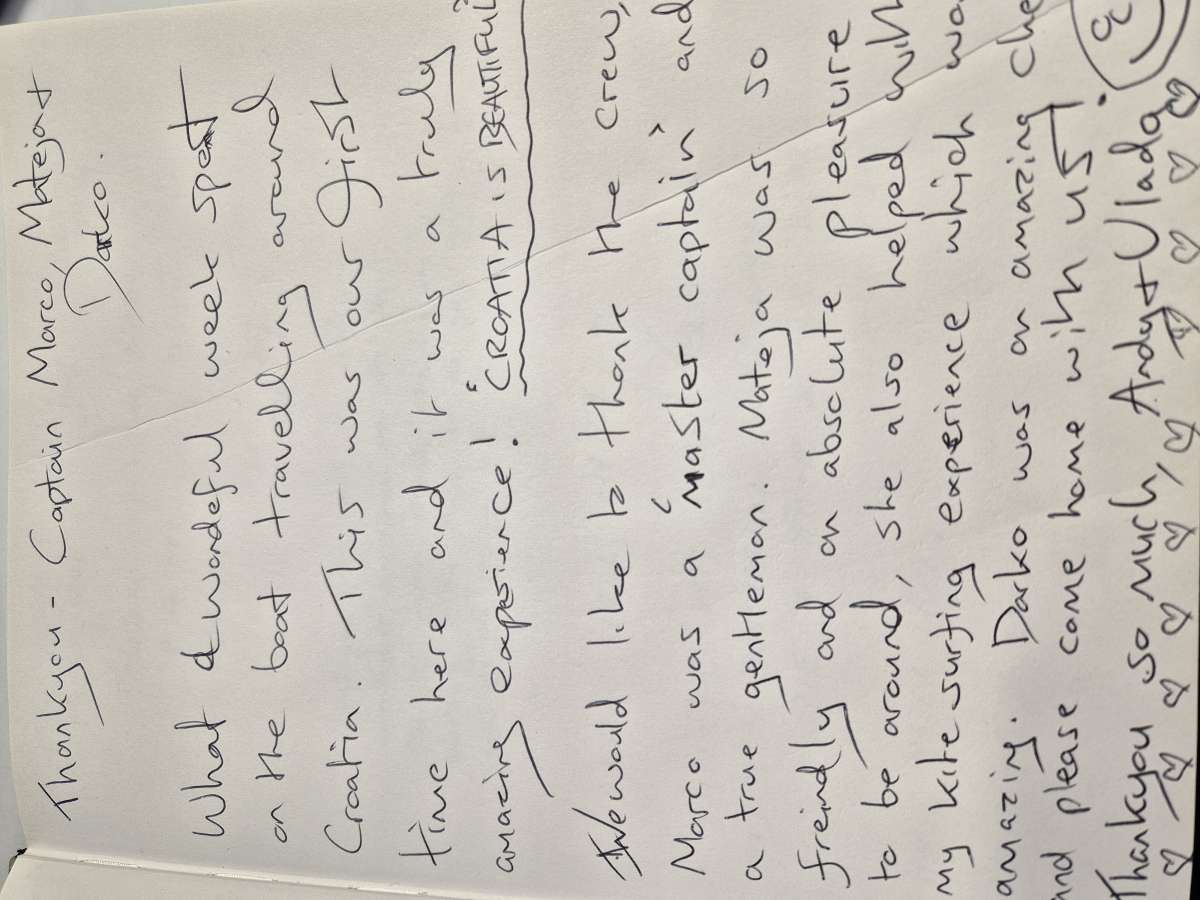 Thankyou - Captain Marco, Mateja +
Darko.
What a wondeful week spent
on the boat travelling around
Croatia. This was our first
time here and it was a truly
amazing experience! "CROATIA IS BEAUTIFUL"
We would like to thank the crew,
Marco was a 'master captain' and
a true gentleman. Mateja was so
freindly and an absolute pleasure
to be around, she also helped with
my kite surfing experience which wa
amazing. Darko was an amazing che
and please come home with us!
Thankyou so much, Andy + Vlado